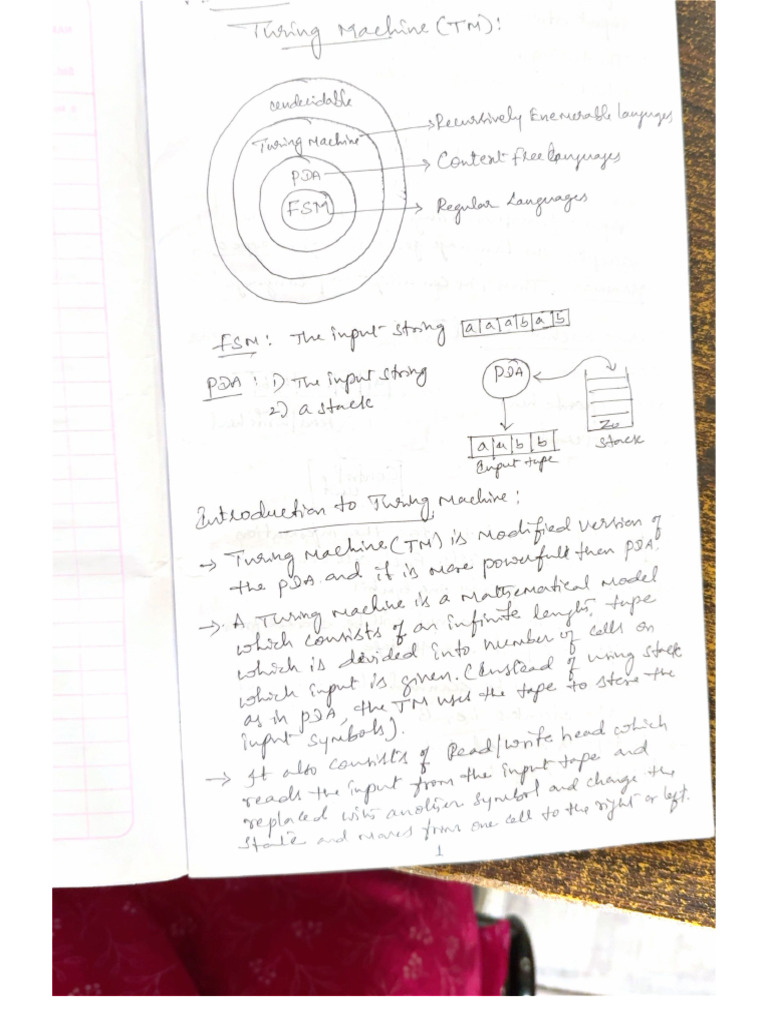 Turing Machine (TM):
undecidable
Turing Machine
PDA
FSM
Recursively Enemerable languages
Content free Languages
Regular Languages
FSM: The input string a a a b a b
PDA: 1) The input string
2) a stack
PDA
Z0
stack
a a b b
Input tape
Introduction to Turing Machine:
→ Turing Machine (TM) is Modified version of
the PDA and it is more powerfull then PDA.
→ A Turing Machine is a Mathematical Model
which consists of an infinite length tape
which is divided into number of cells on
which input is given. (Instead of using stack
as in PDA, the TM uses the tape to store the
input symbols).
→ It also consists of Read/write head which
reads the input from the input tape and
replaced with another symbol and change the
state and moves from one cell to the right or left.
1